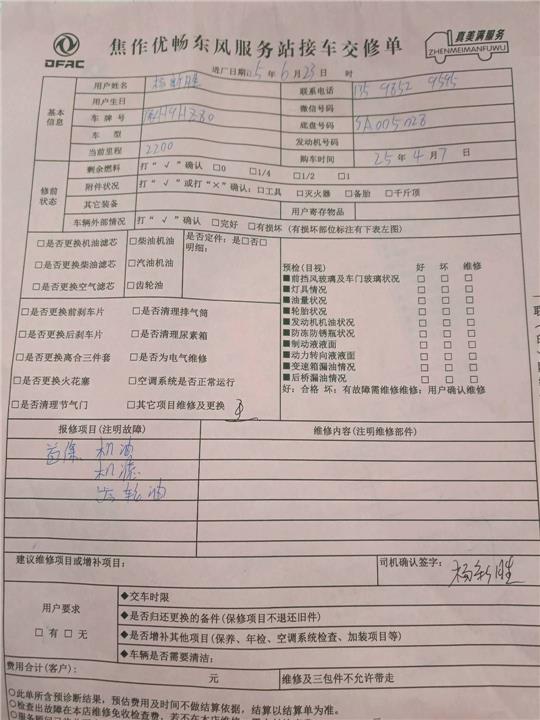 DFAC
焦作优畅东风服务站接车交修单
真美满服务
ZHENMEIMANFUWU
进厂日期:25 年 6 月 23 日 时
基本信息
用户姓名
联系电话 135 9852 9595
用户生日
微信号码
车 牌 号
底盘号码 SA005028
车 型
发动机号码
当前里程 2200
购车时间 25 年 4 月 7 日
修前状态
剩余燃料 打“√”确认 □0 □1/4 □1/2 □1
附件状况 打“√”或打“×”确认:□工具 □灭火器 □备胎 □千斤顶
其它装备 用户寄存物品
车辆外部情况 打“√”确认 □完好 □有损坏 (有损坏部位标注有下表左图)
□是否更换机油滤芯 □柴油机油 是否定件:是□否□
明细:
□是否更换柴油滤芯 □汽油机油
□是否更换空气滤芯 □齿轮油
预检(目视) 好 坏 维修
■前挡风玻璃及车门玻璃状况 □ □ □
■灯具情况 □ □ □
■油量状况 □ □ □
■轮胎状况 □ □ □
■发动机机油状况 □ □ □
■防冻防锈瓶状况 □ □ □
■制动液液面 □ □ □
■动力转向液液面 □ □ □
■变速箱漏油情况 □ □ □
■后桥漏油情况 □ □ □
好:合格 坏:有故障需维修维修:用户确认维修
□是否更换前刹车片 □是否清理排气筒
□是否更换后刹车片 □是否清理尿素箱
□是否更换离合三件套 □是否为电气维修
□是否更换火花塞 □空调系统是否正常运行
□是否清理节气门 □其它项目维修及更换
报修项目(注明故障) 维修内容(注明维修部件)
首保 机油
机滤
齿轮油
建议维修项目或增补项目:
司机确认签字: 杨新胜
用户要求
□有 □无
◆交车时限
◆是否归还更换的备件(保修项目不退还旧件)
◆是否增补其他项目(保养、年检、空调系统检查、加装项目等)
◆车辆是否需要清洁:
费用合计(客户): 元 维修及三包件不允许带走
○此单所含预诊断结果,预估费用及时间不做结算依据,结算以结算单为准。
○检查出故障在本店维修免收检查费,若不在本店维修